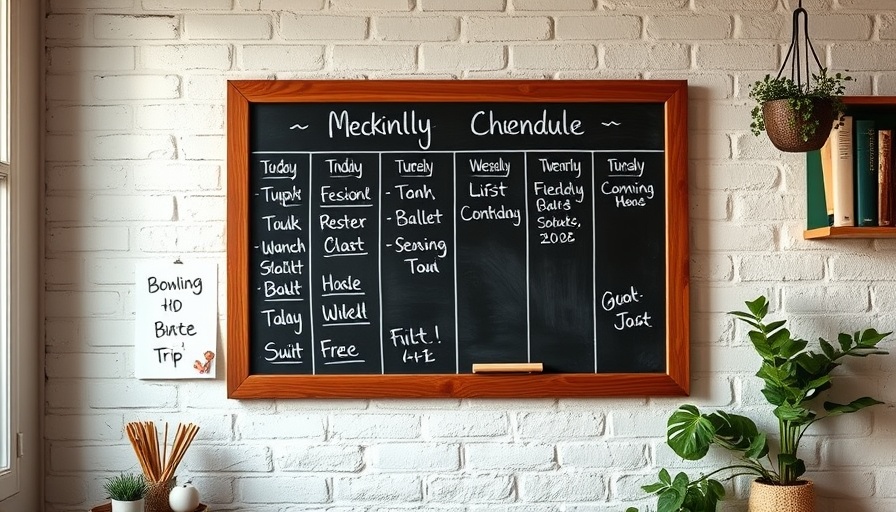 ~ Meckinlly Chendule ~
Tuday
- Tuipk
Toulk
- Wanch
Slolit
- Balit
Talay
Suit
Tridry
Fesionl
Rester
Clast
Hoale
Wilell
Free
Turely
- Tanh
- Ballet
- Sesring
Toud
Fult.!
Wesaly
List
Contdag
Twenrly
Fleddly
Balls
Soluts,
Tunsaly
Comning
Hees
Guat-
Jast
Bowling
Binte
Trip'